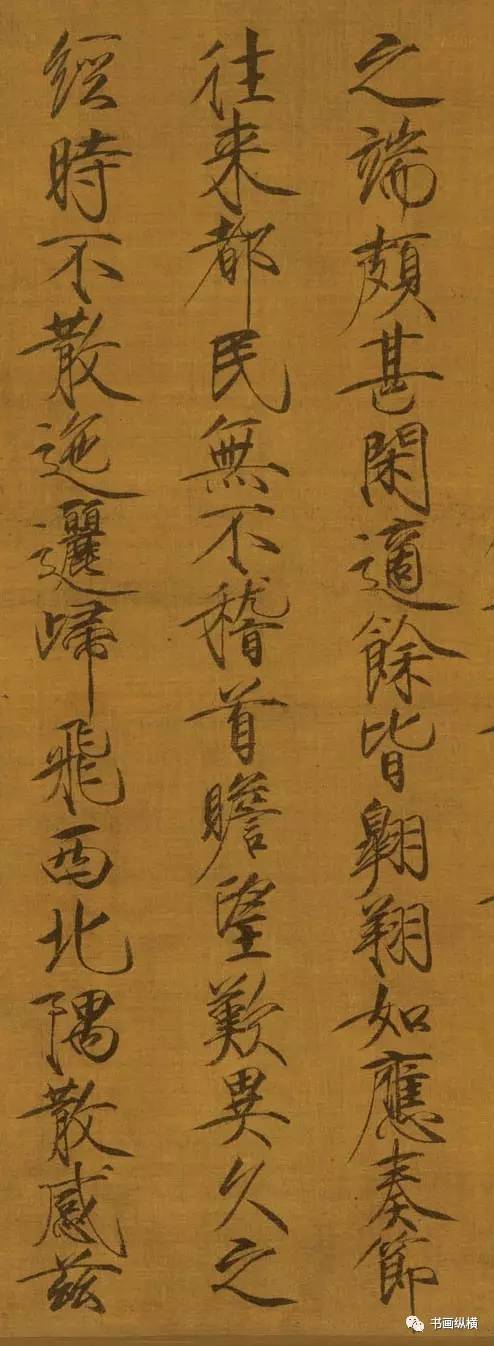 之端頗甚閑適餘皆翱翔如應奏節
往来都民無不稽首瞻望歎異久之
經時不散迤邐歸飛西北隅散感兹
书画纵横